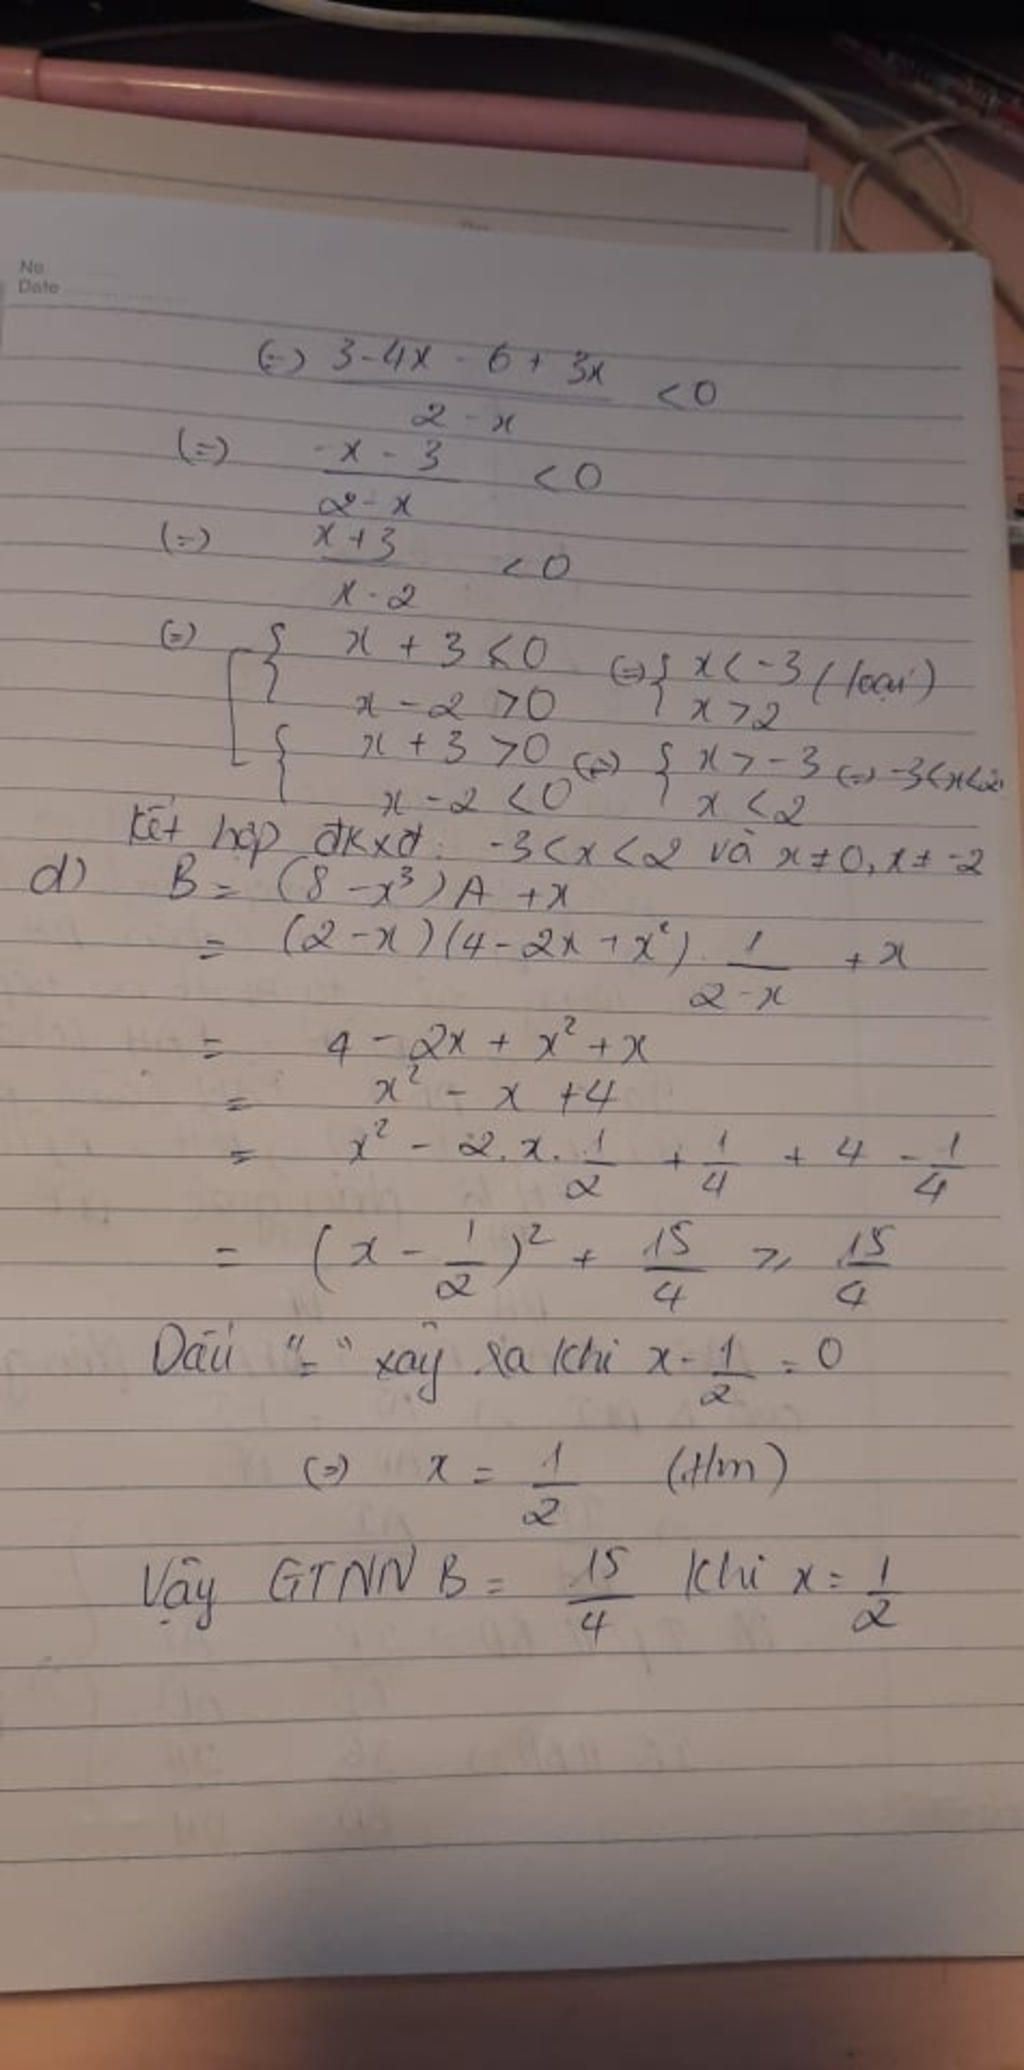 No
Date
(=) 3-4x - 6 + 3x / 2 - x < 0
(=) -x - 3 / 2 - x < 0
(=) x + 3 / x - 2 < 0
(=) [ { x + 3 < 0 (=) { x < -3 (loại)
x - 2 > 0 x > 2
{ x + 3 > 0 (=) { x > -3 (=) -3 < x < 2
x - 2 < 0 x < 2
Kết hợp đkxđ: -3 < x < 2 và x ≠ 0, x ≠ -2
d) B = (8 - x³) A + x
= (2 - x)(4 - 2x + x²) . 1 / 2 - x + x
= 4 - 2x + x² + x
= x² - x + 4
= x² - 2. x. 1/2 + 1/4 + 4 - 1/4
= (x - 1/2)² + 15/4 ⩾ 15/4
Dấu "=" xảy ra khi x - 1/2 = 0
(=) x = 1/2 (t/m)
Vậy GTNN B = 15/4 khi x = 1/2